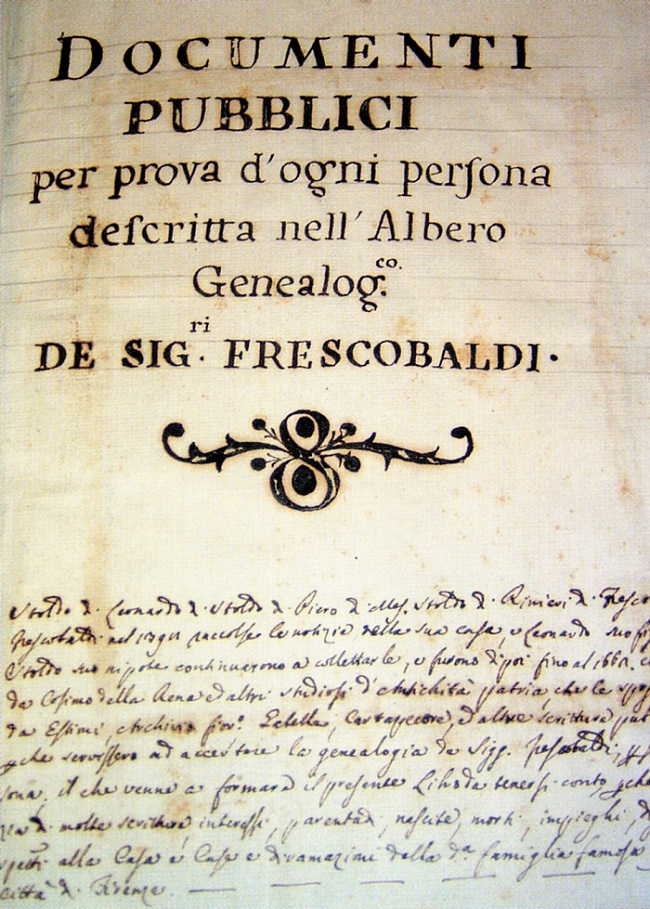 DOCUMENTI
PUBBLICI
per prova d'ogni perſona
deſcritta nell'Albero
Genealog.co
DE SIG.ri FRESCOBALDI.
Stoldo d. Leonardo d. Stoldo d. Piero d. Mes. Stoldo d. Rinieri d. Fresco
Frescobaldi nel raccolse le notizie della sua casa, e Leonardo suo fig
Stoldo suo nipote continuarono a collettarle, e furono dipoi fino al
da Cosimo della Rena ed altri studiosi d'Antichità patria, che le
da Estimi, Archivio fior.o Cartapecore, ed altre scritture
che servissero ad accertare la genealogia da Sigg. Frescobaldi,
sona, il che venne a formare il presente Lib. da tenersi conto,
molte scritture interessi, parentadi, nascite, morti, impieghi,
alla Casa e Case e diramazioni della d.a famiglia famosa
città d. Firenze.